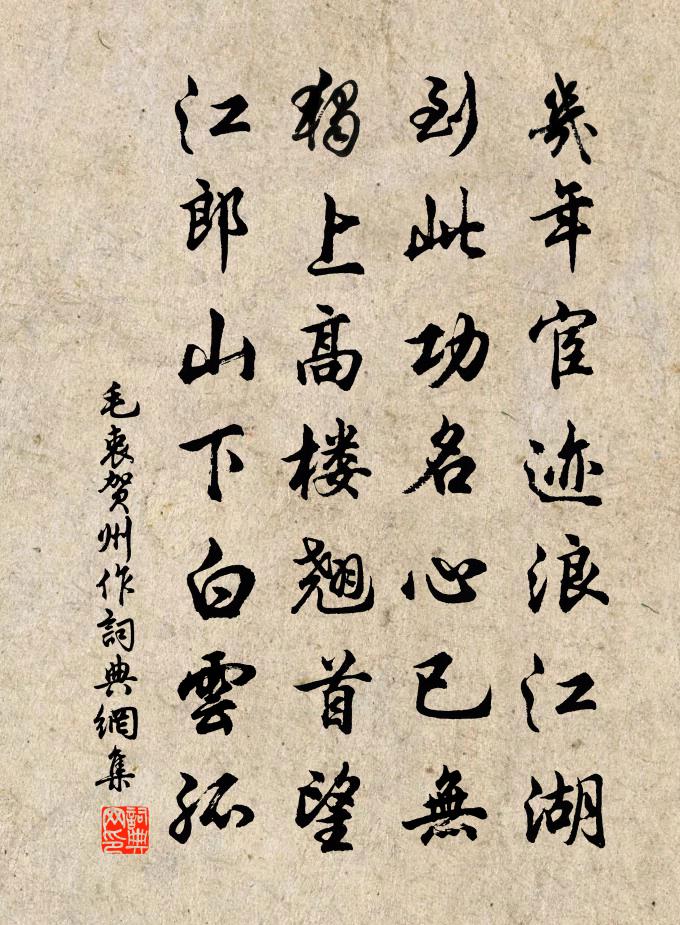 幾年宦迹浪江湖
到此功名心已無
獨上高楼翘首望
江郎山下白雲孤
毛衷贺州作詞典網集
詞典网印